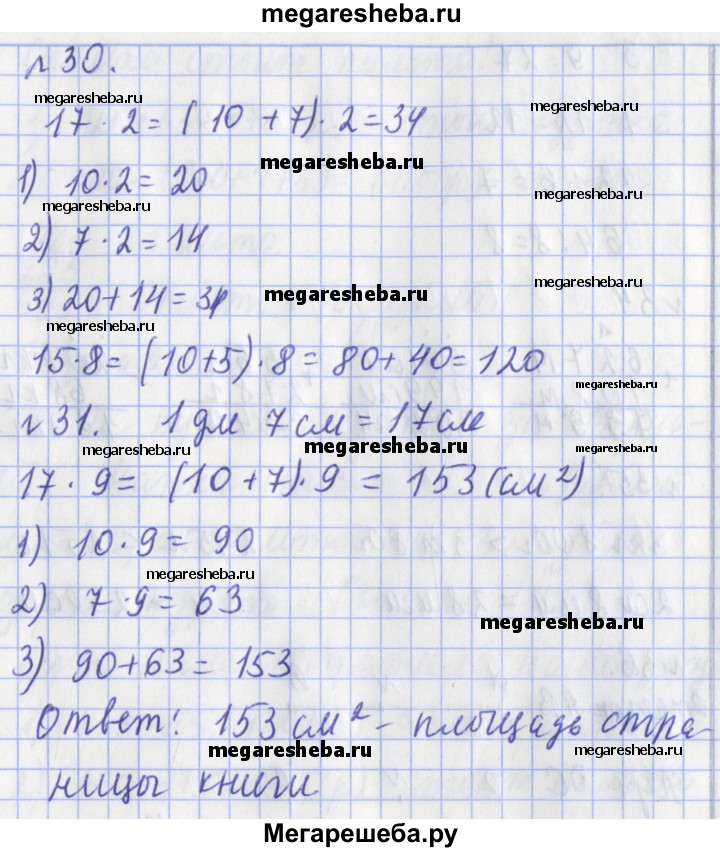 megaresheba.ru
№30.
megaresheba.ru
megaresheba.ru
17 · 2 = (10 + 7) · 2 = 34
megaresheba.ru
1) 10 · 2 = 20
megaresheba.ru
megaresheba.ru
2) 7 · 2 = 14
megaresheba.ru
3) 20 + 14 = 34
megaresheba.ru
megaresheba.ru
15 · 8 = (10+5) · 8 = 80 + 40 = 120
megaresheba.ru
№31. 1 дм 7 см = 17 см
megaresheba.ru
megaresheba.ru
megaresheba.ru
17 · 9 = (10 + 7) · 9 = 153 (см²)
1) 10 · 9 = 90
megaresheba.ru
2) 7 · 9 = 63
megaresheba.ru
3) 90 + 63 = 153
Ответ: 153 см² - площадь стра-
megaresheba.ru
megaresheba.ru
ницы книги
Мегарешеба.ру